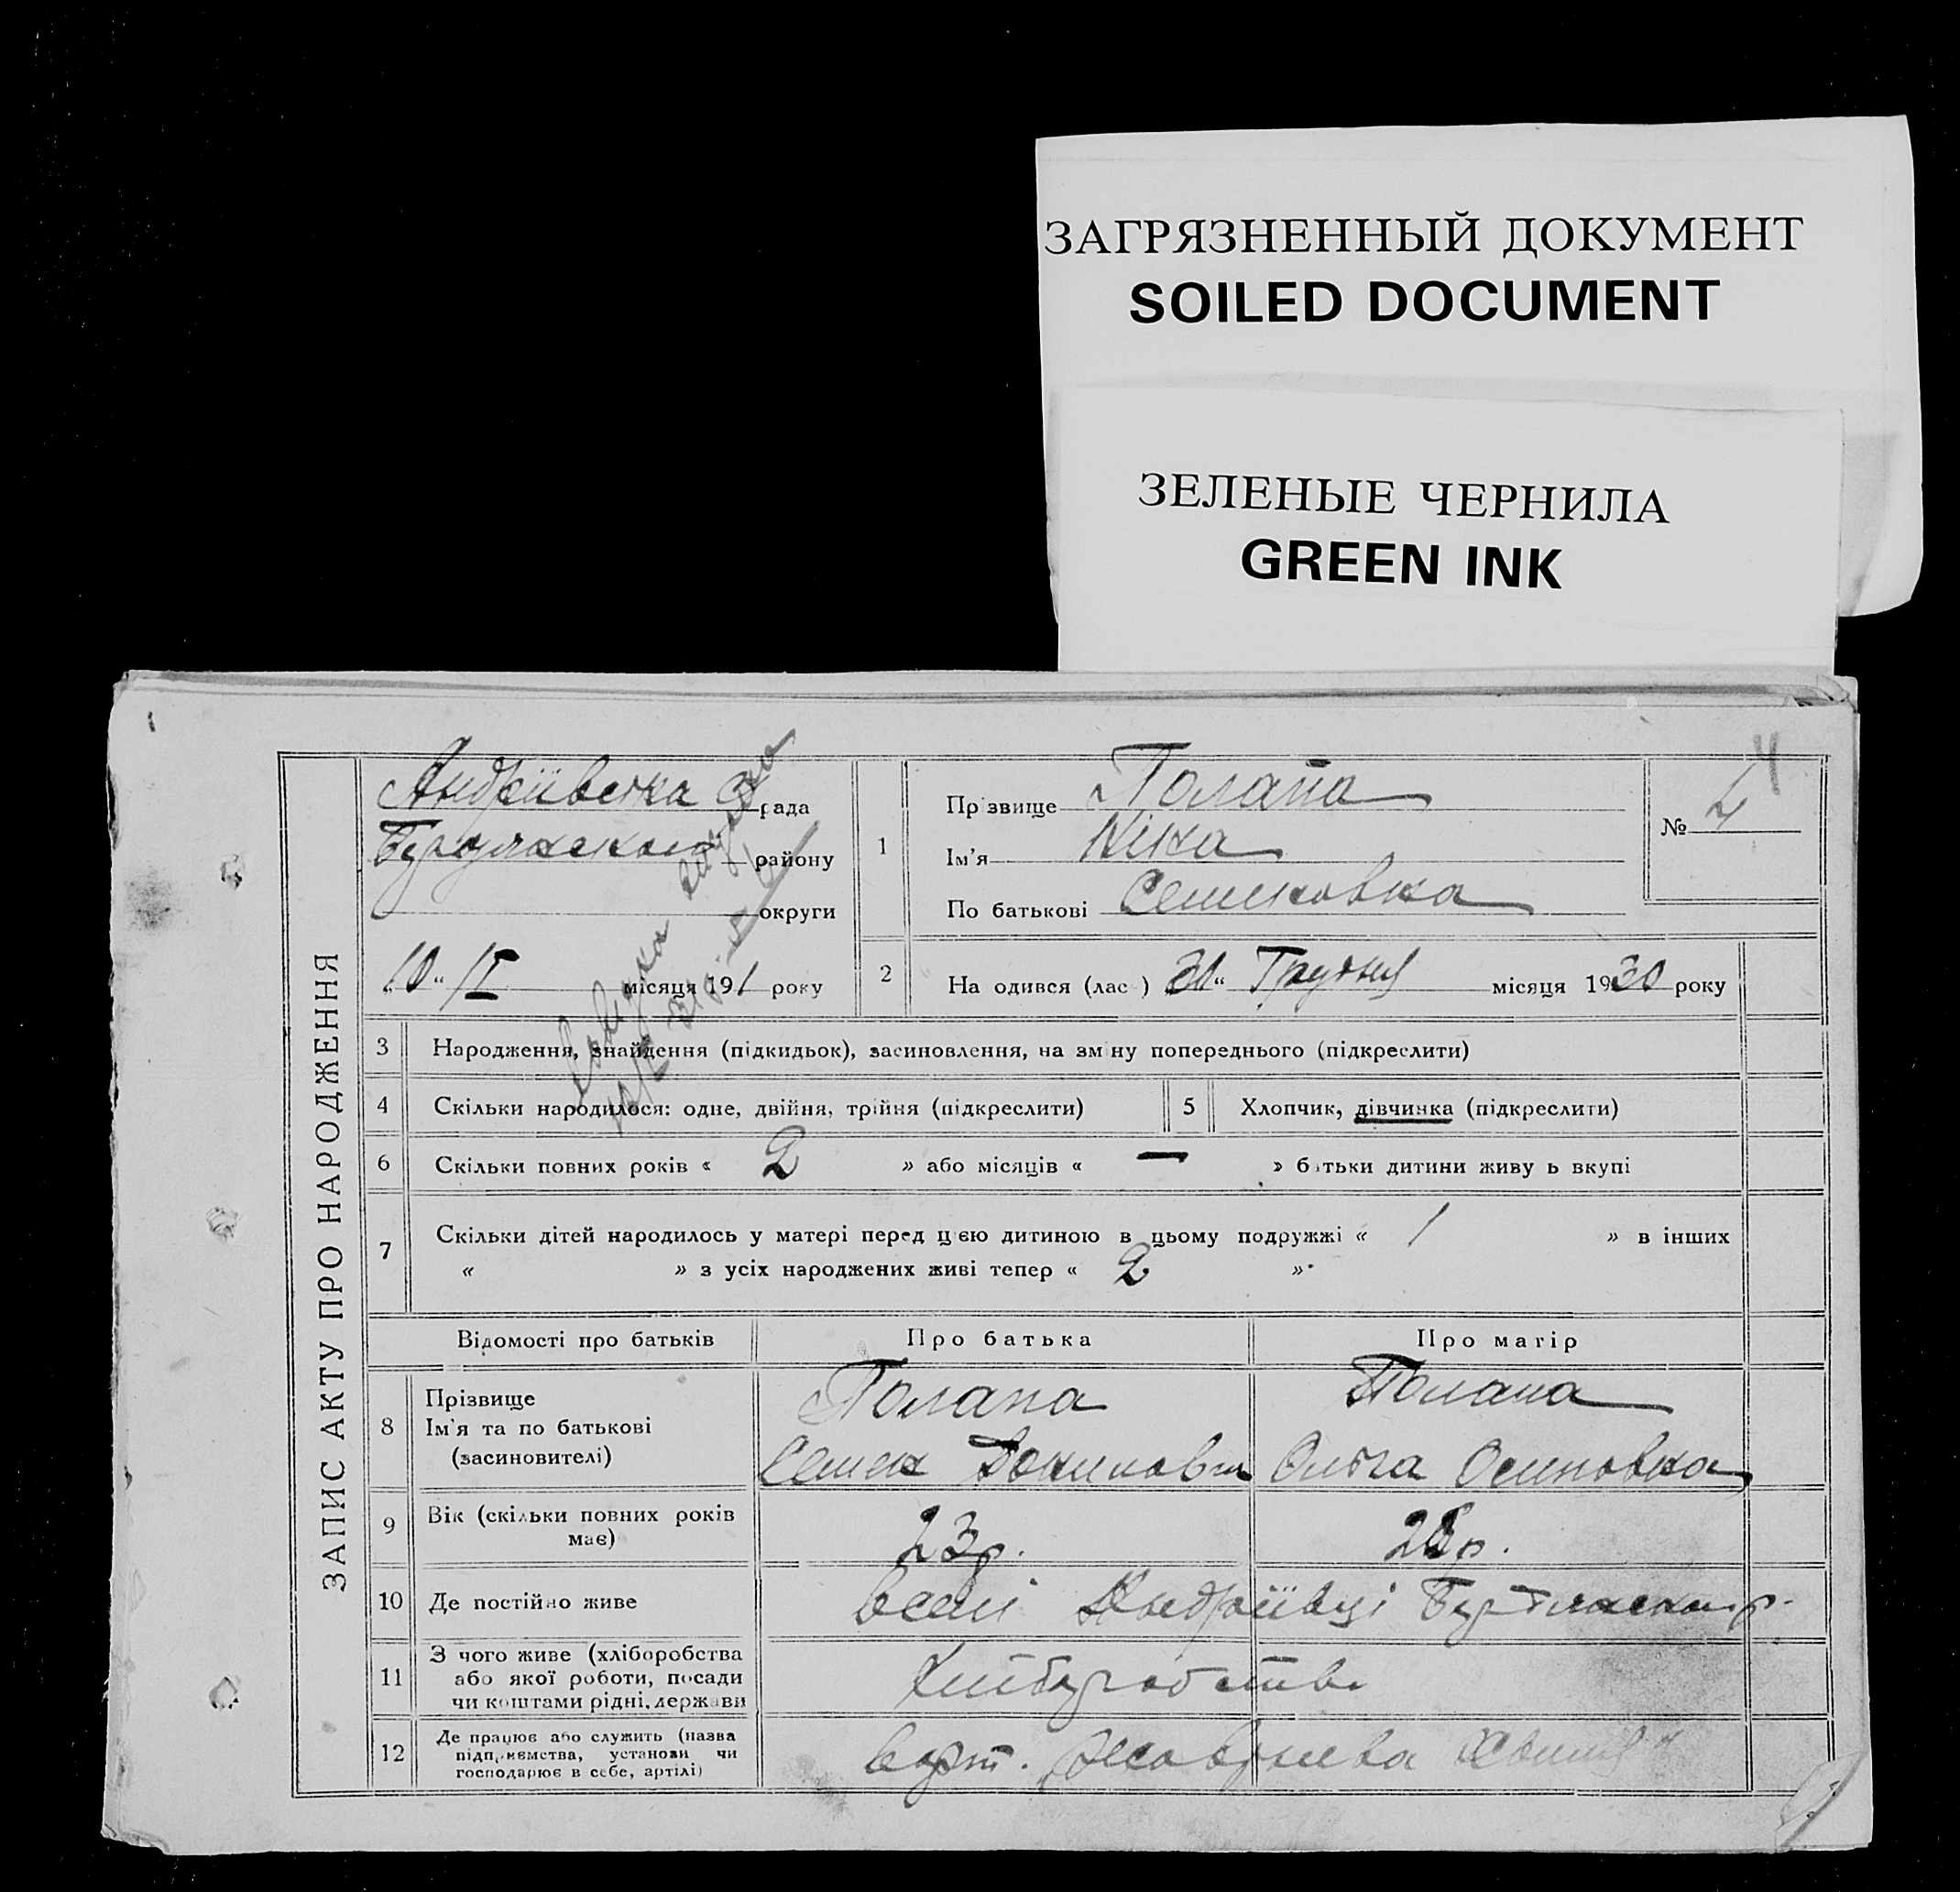 ЗАГРЯЗНЕННЫЙ ДОКУМЕНТ
SOILED DOCUMENT
ЗЕЛЕНЫЕ ЧЕРНИЛА
GREEN INK
ЗАПИС АКТУ ПРО НАРОДЖЕННЯ
4
Андріївська рада
району
округи
10 "місяця 191 року
1 Прізвище Полапа
Ім'я Ніна
По батькові Семеновна
№ 4
2 На одився (лас ) 31 " Грудня місяця 1930 року
3 Народження, знайдення (підкидьок), засиновлення, на зміну попереднього (підкреслити)
4 Скільки народилося: одне, двійня, трійня (підкреслити) 5 Хлопчик, дівчинка (підкреслити)
6 Скільки повних років « 2 » або місяців « — » батьки дитини живу ь вкупі
7 Скільки дітей народилось у матері перед цією дитиною в цьому подружжі « 1 » в інших
« » з усіх народжених живі тепер « 2 »
Відомості про батьків Про батька Про матір
8 Прізвище Полапа Полапа
Ім'я та по батькові
(засиновителі) Семен Ольга Осиповна
9 Вік (скільки повних років має) 23 р. р.
10 Де постійно живе в селі Андріївці
11 З чого живе (хліборобства
або якої роботи, посади
чи коштами рідні, держави
12 Де працює або служить (назва
підприємства, установи чи
господарює в себе, артілі)